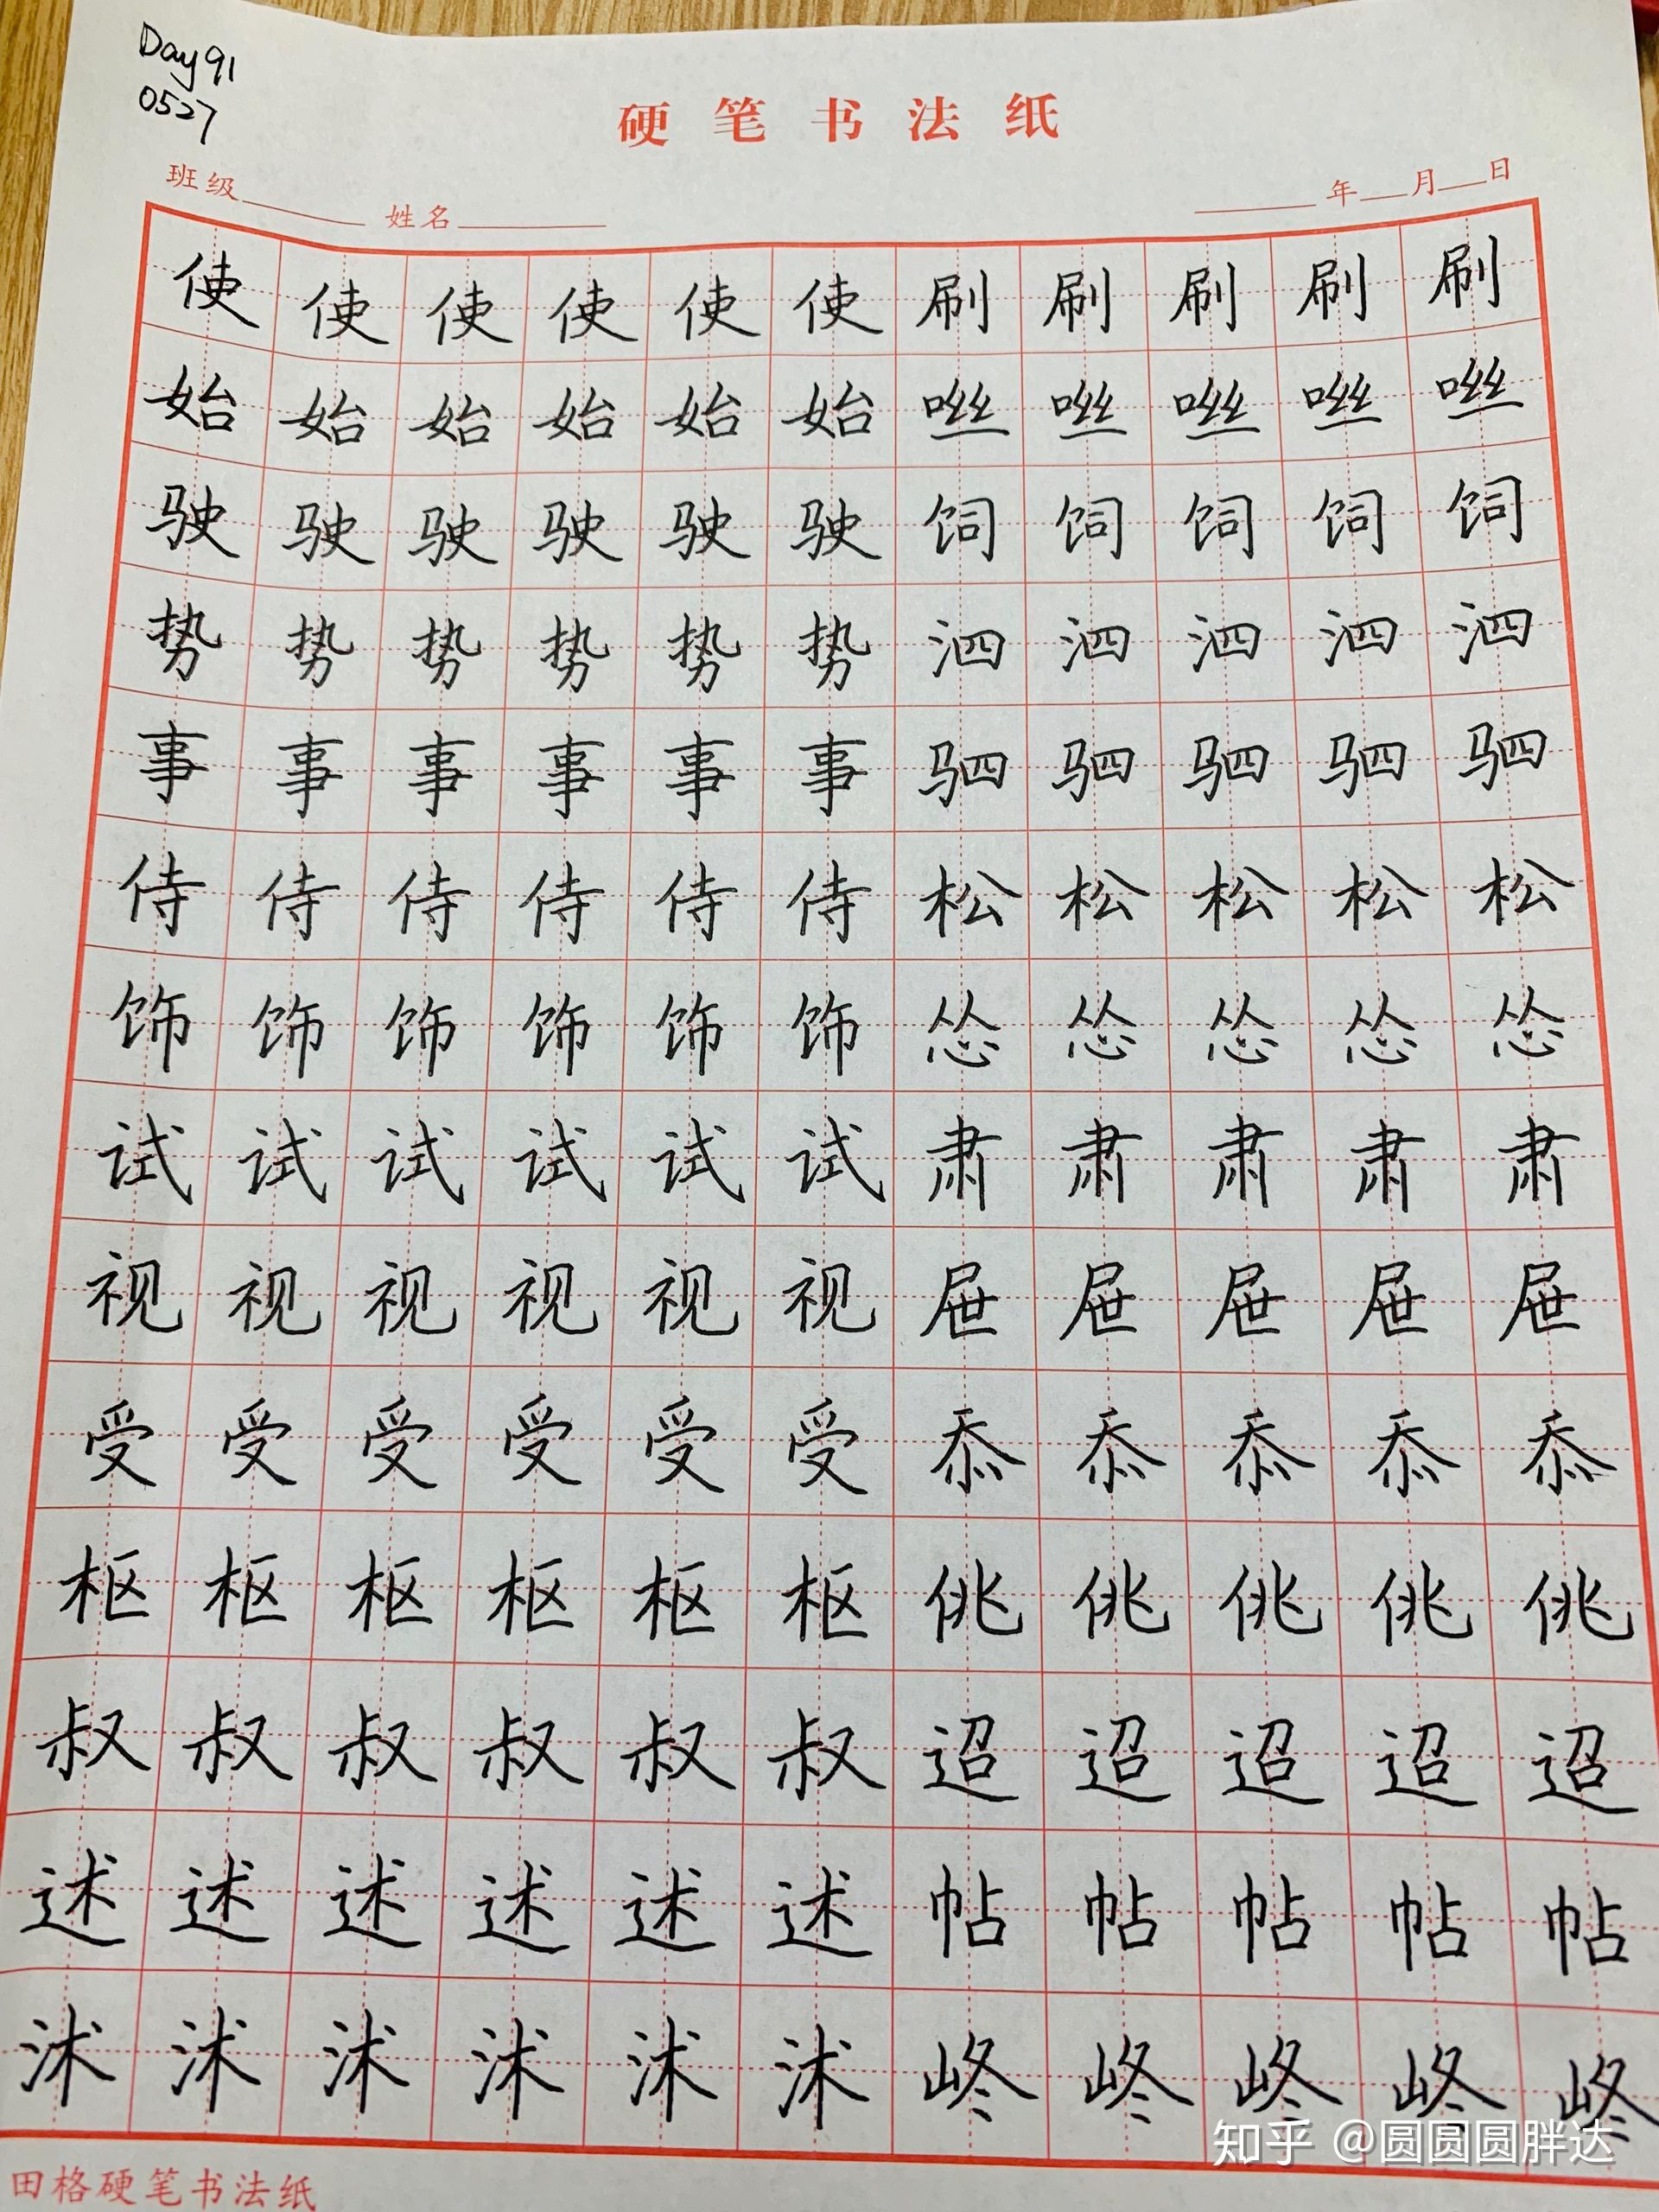 Day 91
0527
硬笔书法纸
班级 姓名 年 月 日
使使使使使使刷刷刷刷刷
始始始始始始咝咝咝咝咝
驶驶驶驶驶驶饲饲饲饲饲
势势势势势势泗泗泗泗泗
事事事事事事驷驷驷驷驷
侍侍侍侍侍侍松松松松松
饰饰饰饰饰饰怂怂怂怂怂
试试试试试试肃肃肃肃肃
视视视视视视屉屉屉屉屉
受受受受受受忝忝忝忝忝
枢枢枢枢枢枢佻佻佻佻佻
叔叔叔叔叔叔迢迢迢迢迢
述述述述述述帖帖帖帖帖
沭沭沭沭沭沭峂峂峂峂峂
知乎 @圆圆圆胖达
田格硬笔书法纸